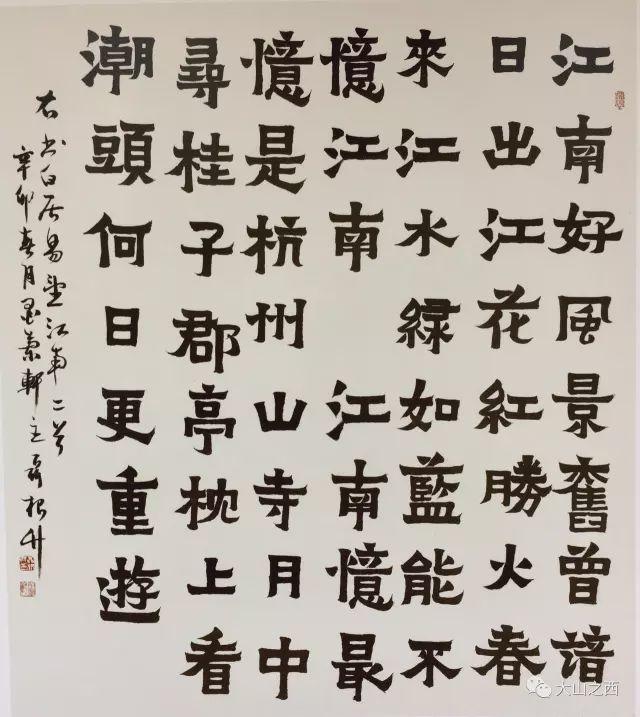 江南好風景舊曾諳
日出江花紅勝火春
來江水綠如藍能不
憶江南 江南憶最
憶是杭州山寺月中
尋桂子郡亭枕上看
潮頭何日更重遊
右书白居易望江南二首
辛卯春月墨軒主聶根升
大山之西